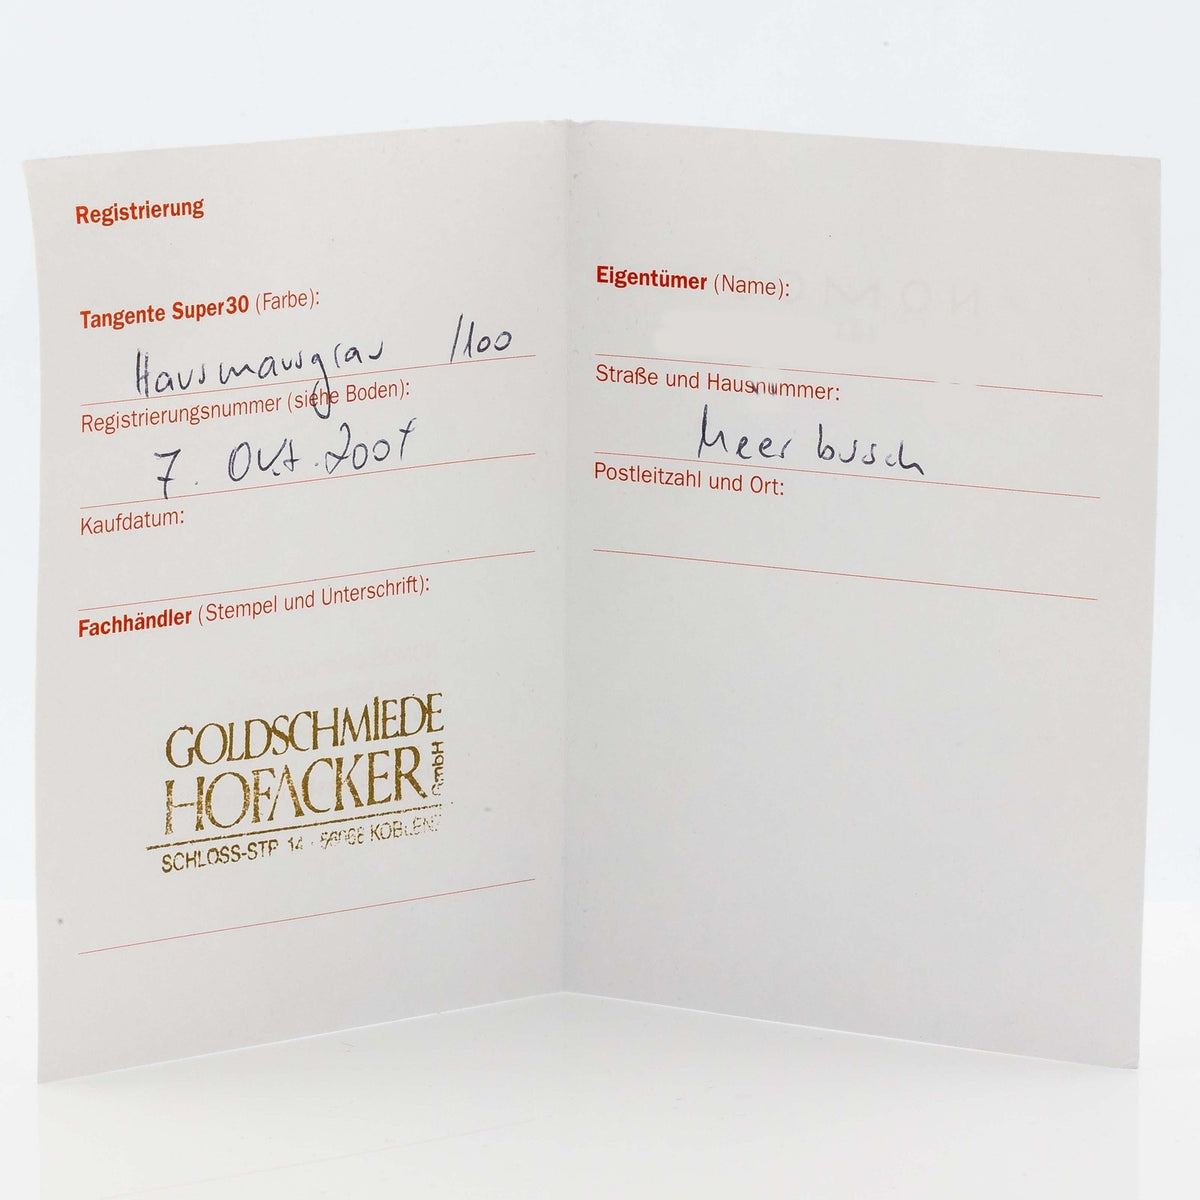 Registrierung
Tangente Super30 (Farbe):
Hausmausgrau /100
Registrierungsnummer (siehe Boden):
7. Okt. 2007
Kaufdatum:
Fachhändler (Stempel und Unterschrift):
GOLDSCHMIEDE
HOFACKER GmbH
SCHLOSS-STR 14 · 56068 KOBLENZ
Eigentümer (Name):
Straße und Hausnummer:
Meerbusch
Postleitzahl und Ort: